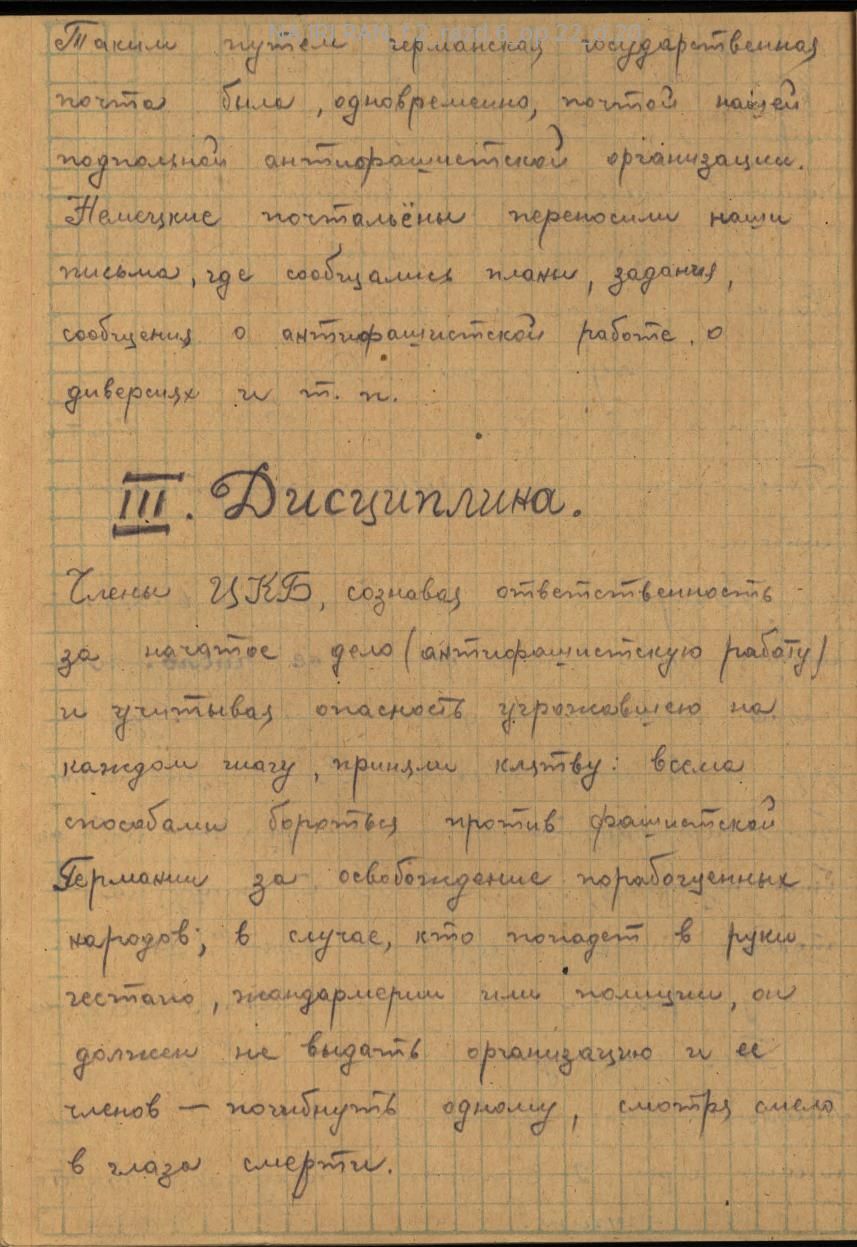 NA IRI RAN. F.2. razd.6. op.22. d.20
Таким путем германская государственная
почта была, одновременно, почтой нашей
подпольной антифашистской организации.
Немецкие почтальёны переносили наши
письма, где сообщались планы, задания,
сообщения о антифашистской работе, о
диверсиях и т. п.
III. Дисциплина.
Члены ЦКБ, сознавая ответственность
за начатое дело (антифашистскую работу)
и учитывая опасность угрожавшею на
каждом шагу, приняли клятву: всема
способами бороться против фашистской
Германии за освобождение порабощенных
народов; в случае, кто попадет в руки
гестапо, жандармерии или полиции, он
должен не выдать организацию и ее
членов — погибнуть одному, смотря смело
в глаза смерти.